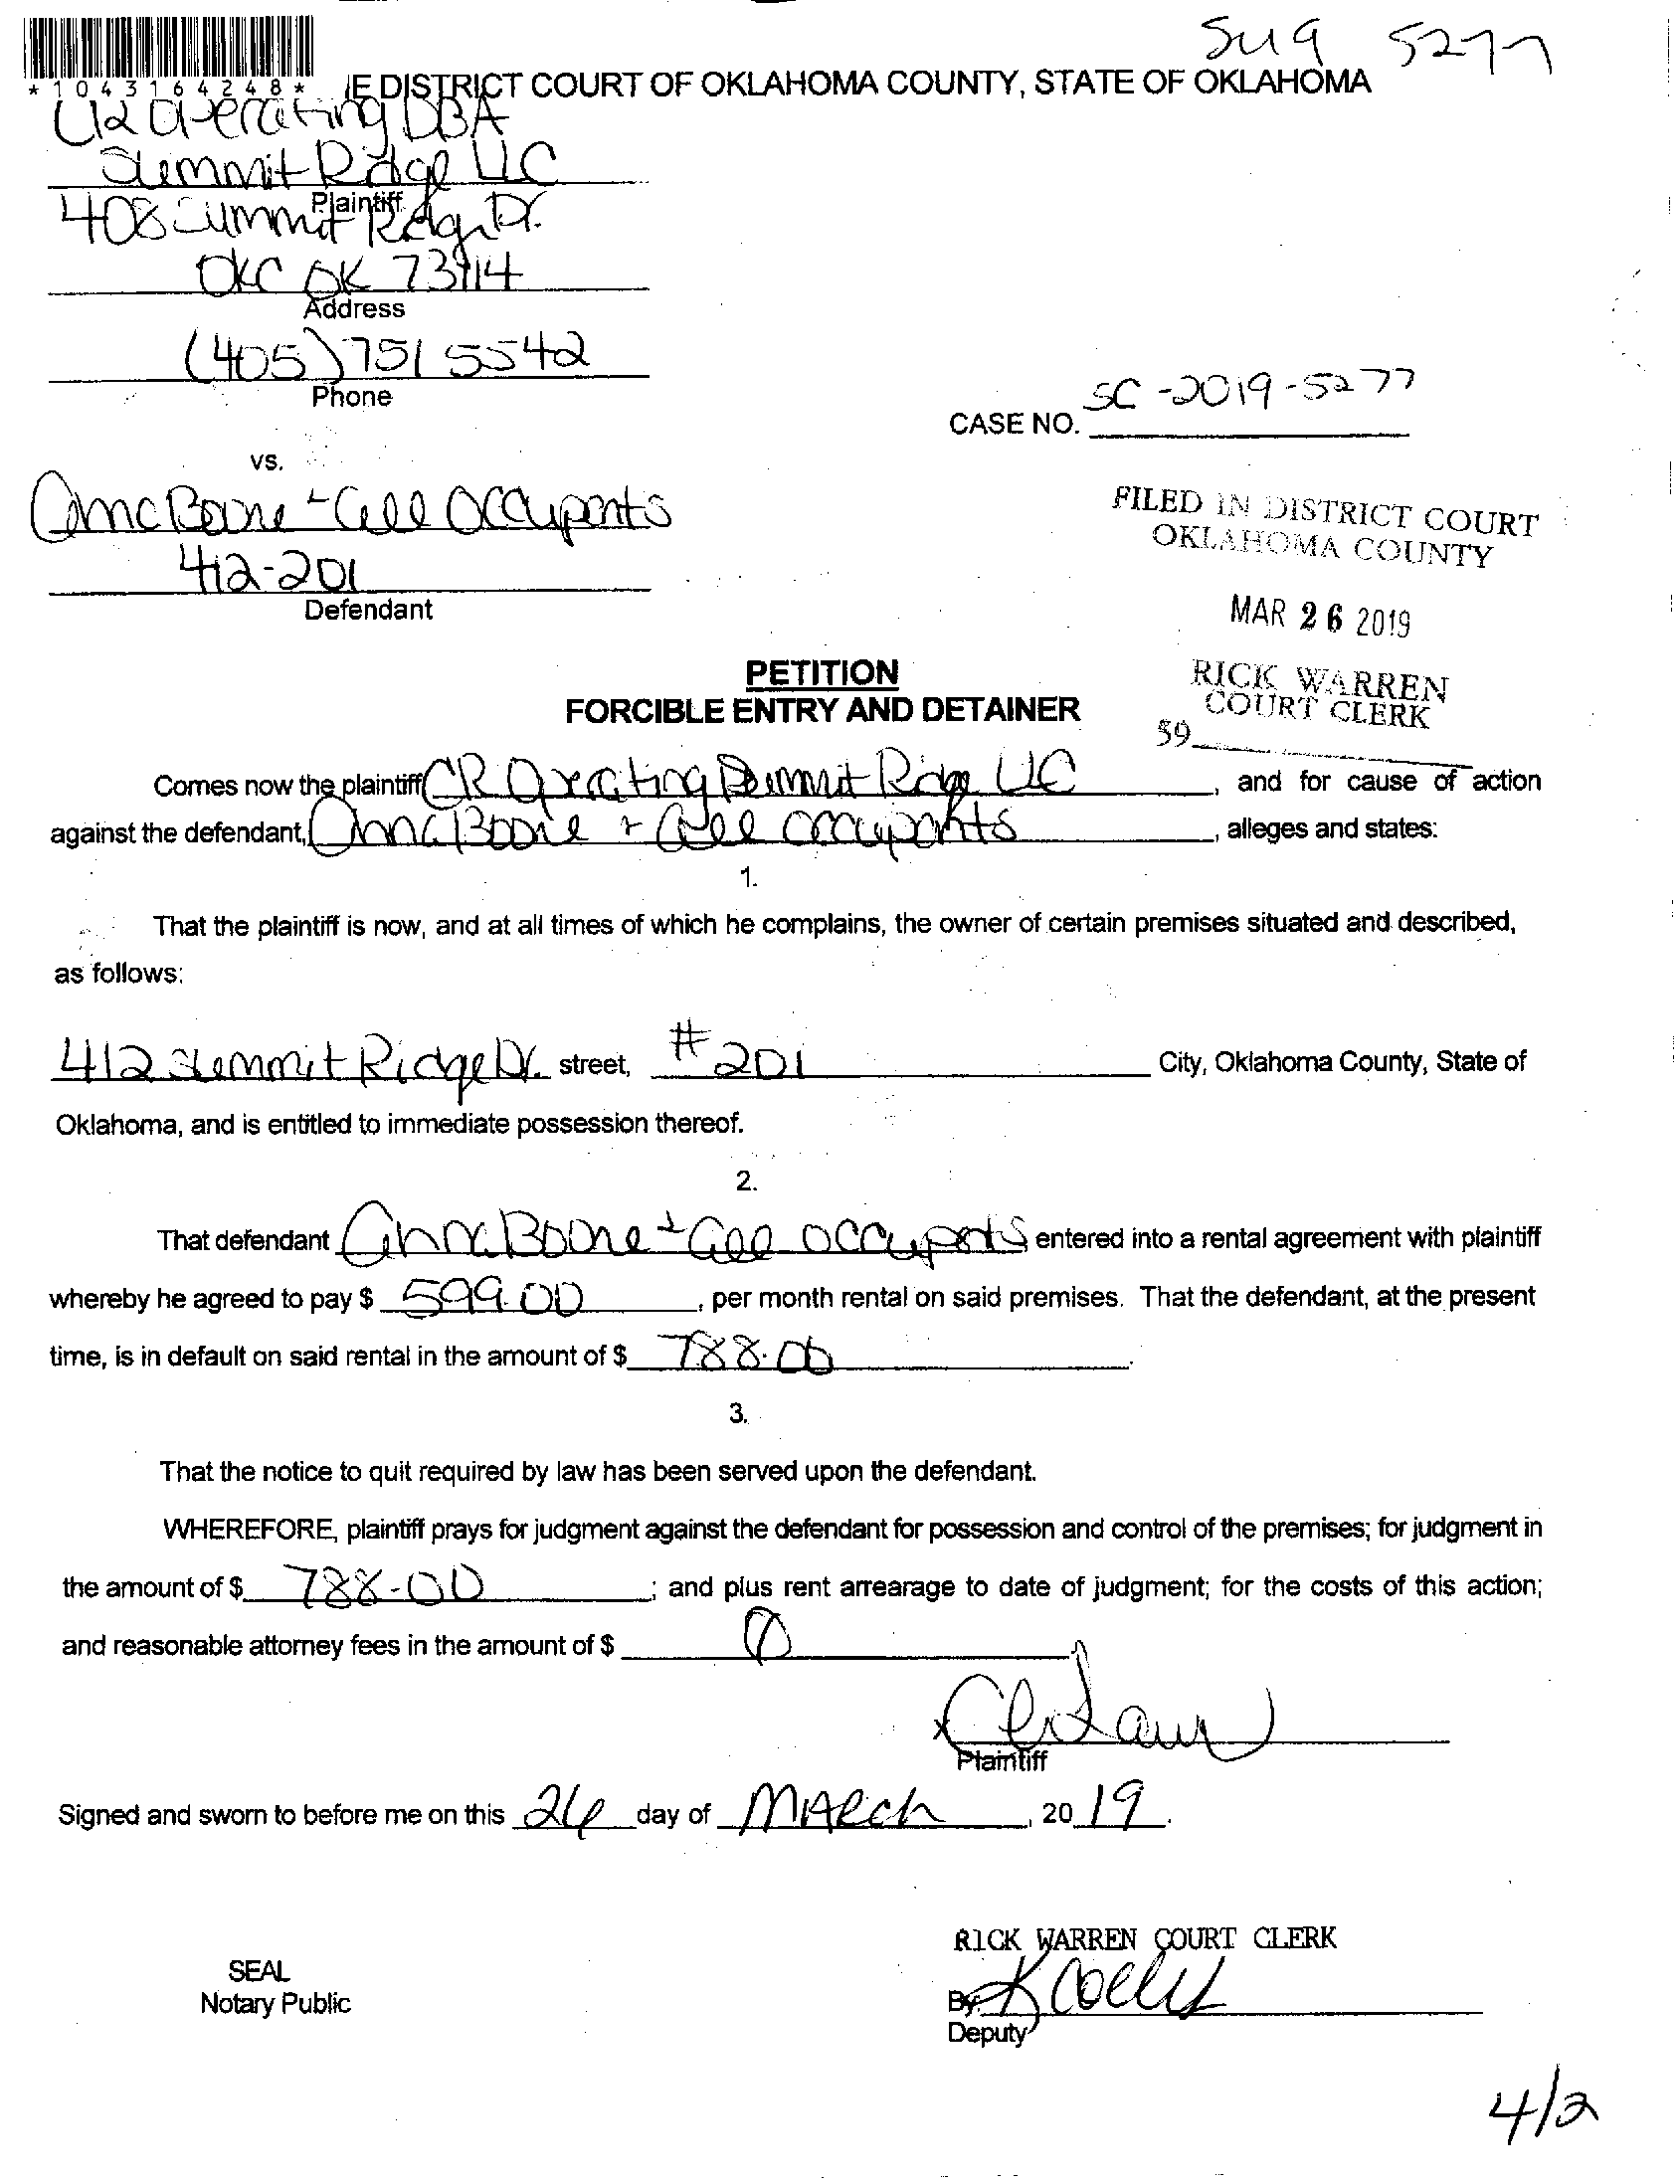 5277
*1043164248*
IE DISTRICT COURT OF OKLAHOMA COUNTY, STATE OF OKLAHOMA
Operating DBA
Summit Ridge LLC
Plaintiff
408 Summit Ridge Dr.
OKC OK 73114
Address
(405) 751 5542
Phone
SC-2019-5277
CASE NO.
vs.
Anna Boone + all occupants
412-201
Defendant
FILED IN DISTRICT COURT
OKLAHOMA COUNTY
MAR 26 2019
RICK WARREN
COURT CLERK
59
PETITION
FORCIBLE ENTRY AND DETAINER
Comes now the plaintiff CR Operating Summit Ridge LLC, and for cause of action
against the defendant, Anna Boone + all occupants, alleges and states:
1.
That the plaintiff is now, and at all times of which he complains, the owner of certain premises situated and described,
as follows:
412 Summit Ridge Dr. street, #201 City, Oklahoma County, State of
Oklahoma, and is entitled to immediate possession thereof.
2.
That defendant Anna Boone + all occupants entered into a rental agreement with plaintiff
whereby he agreed to pay $ 599.00, per month rental on said premises. That the defendant, at the present
time, is in default on said rental in the amount of $ 788.00.
3.
That the notice to quit required by law has been served upon the defendant.
WHEREFORE, plaintiff prays for judgment against the defendant for possession and control of the premises; for judgment in
the amount of $ 788.00; and plus rent arrearage to date of judgment; for the costs of this action;
and reasonable attorney fees in the amount of $ 0
x
Plaintiff
Signed and sworn to before me on this 26 day of MARCh, 20 19.
RICK WARREN COURT CLERK
SEAL
Notary Public
By
Deputy
4/2